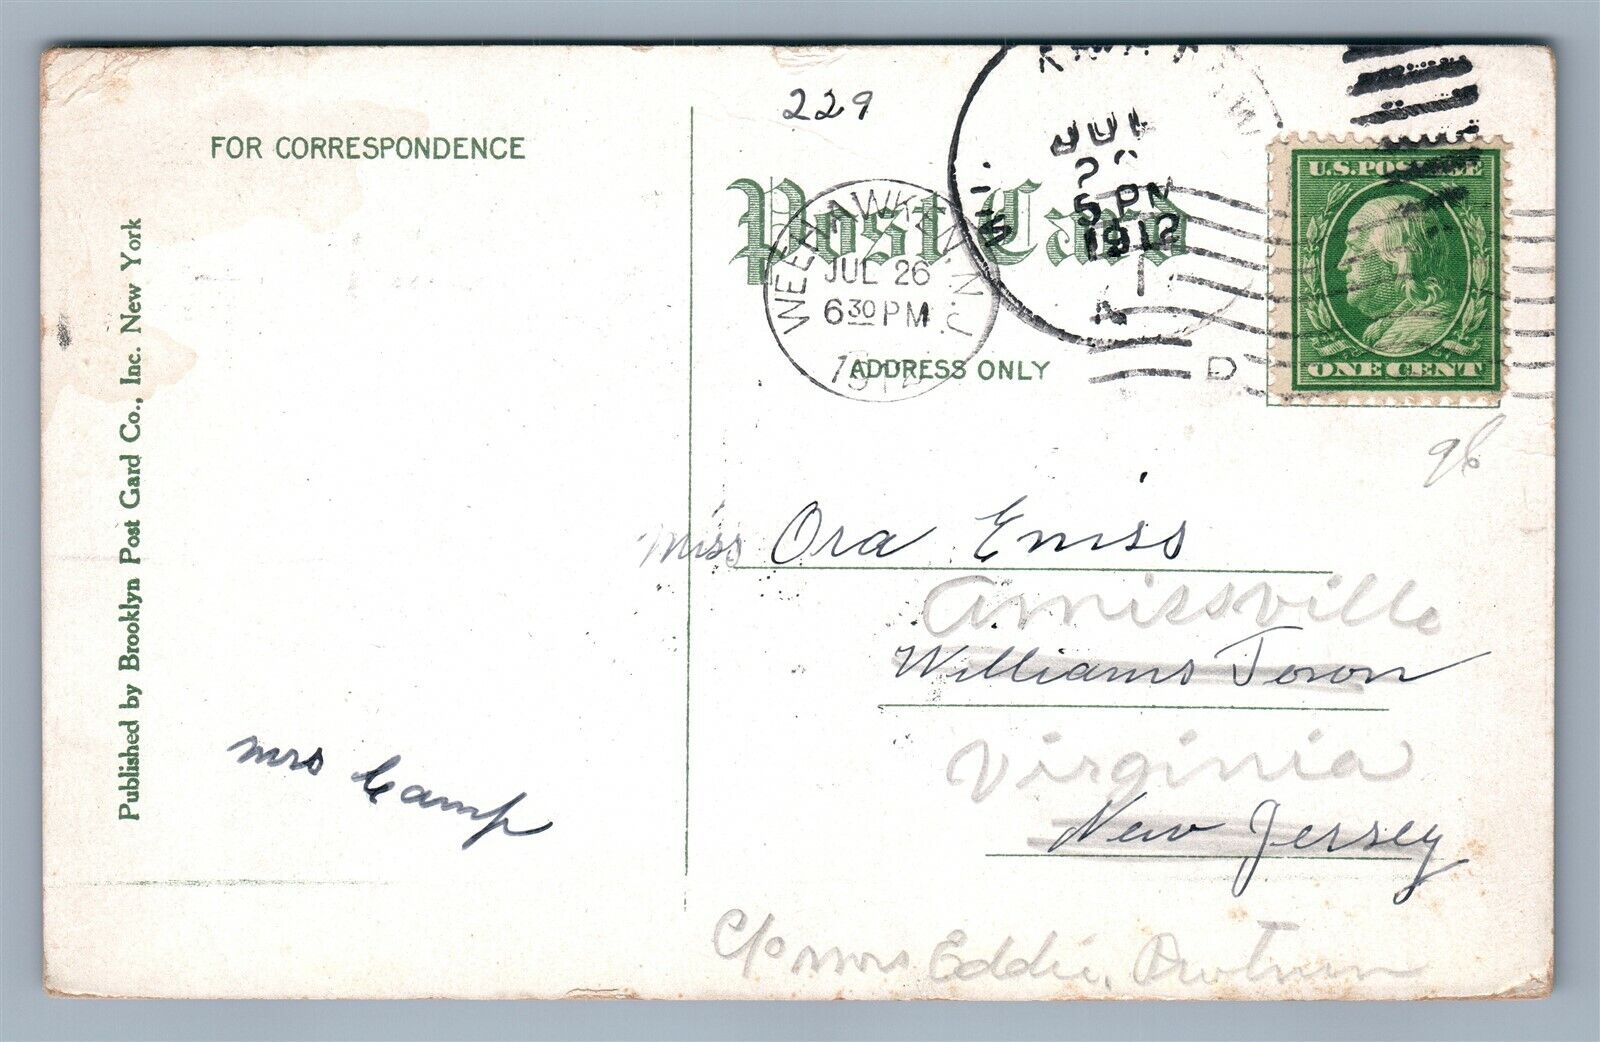 229
FOR CORRESPONDENCE
Post Card
WEEHAWKEN, N.J.
JUL 26
6 30 PM
1912
JUL
5 PM
1912
D
U.S. POSTAGE
ONE CENT
ADDRESS ONLY
Published by Brooklyn Post Card Co., Inc. New York
96
Miss Ora Emiss
Amissville
Williams Town
Virginia
New Jersey
Mrs Camp
c/o Mrs Eddie